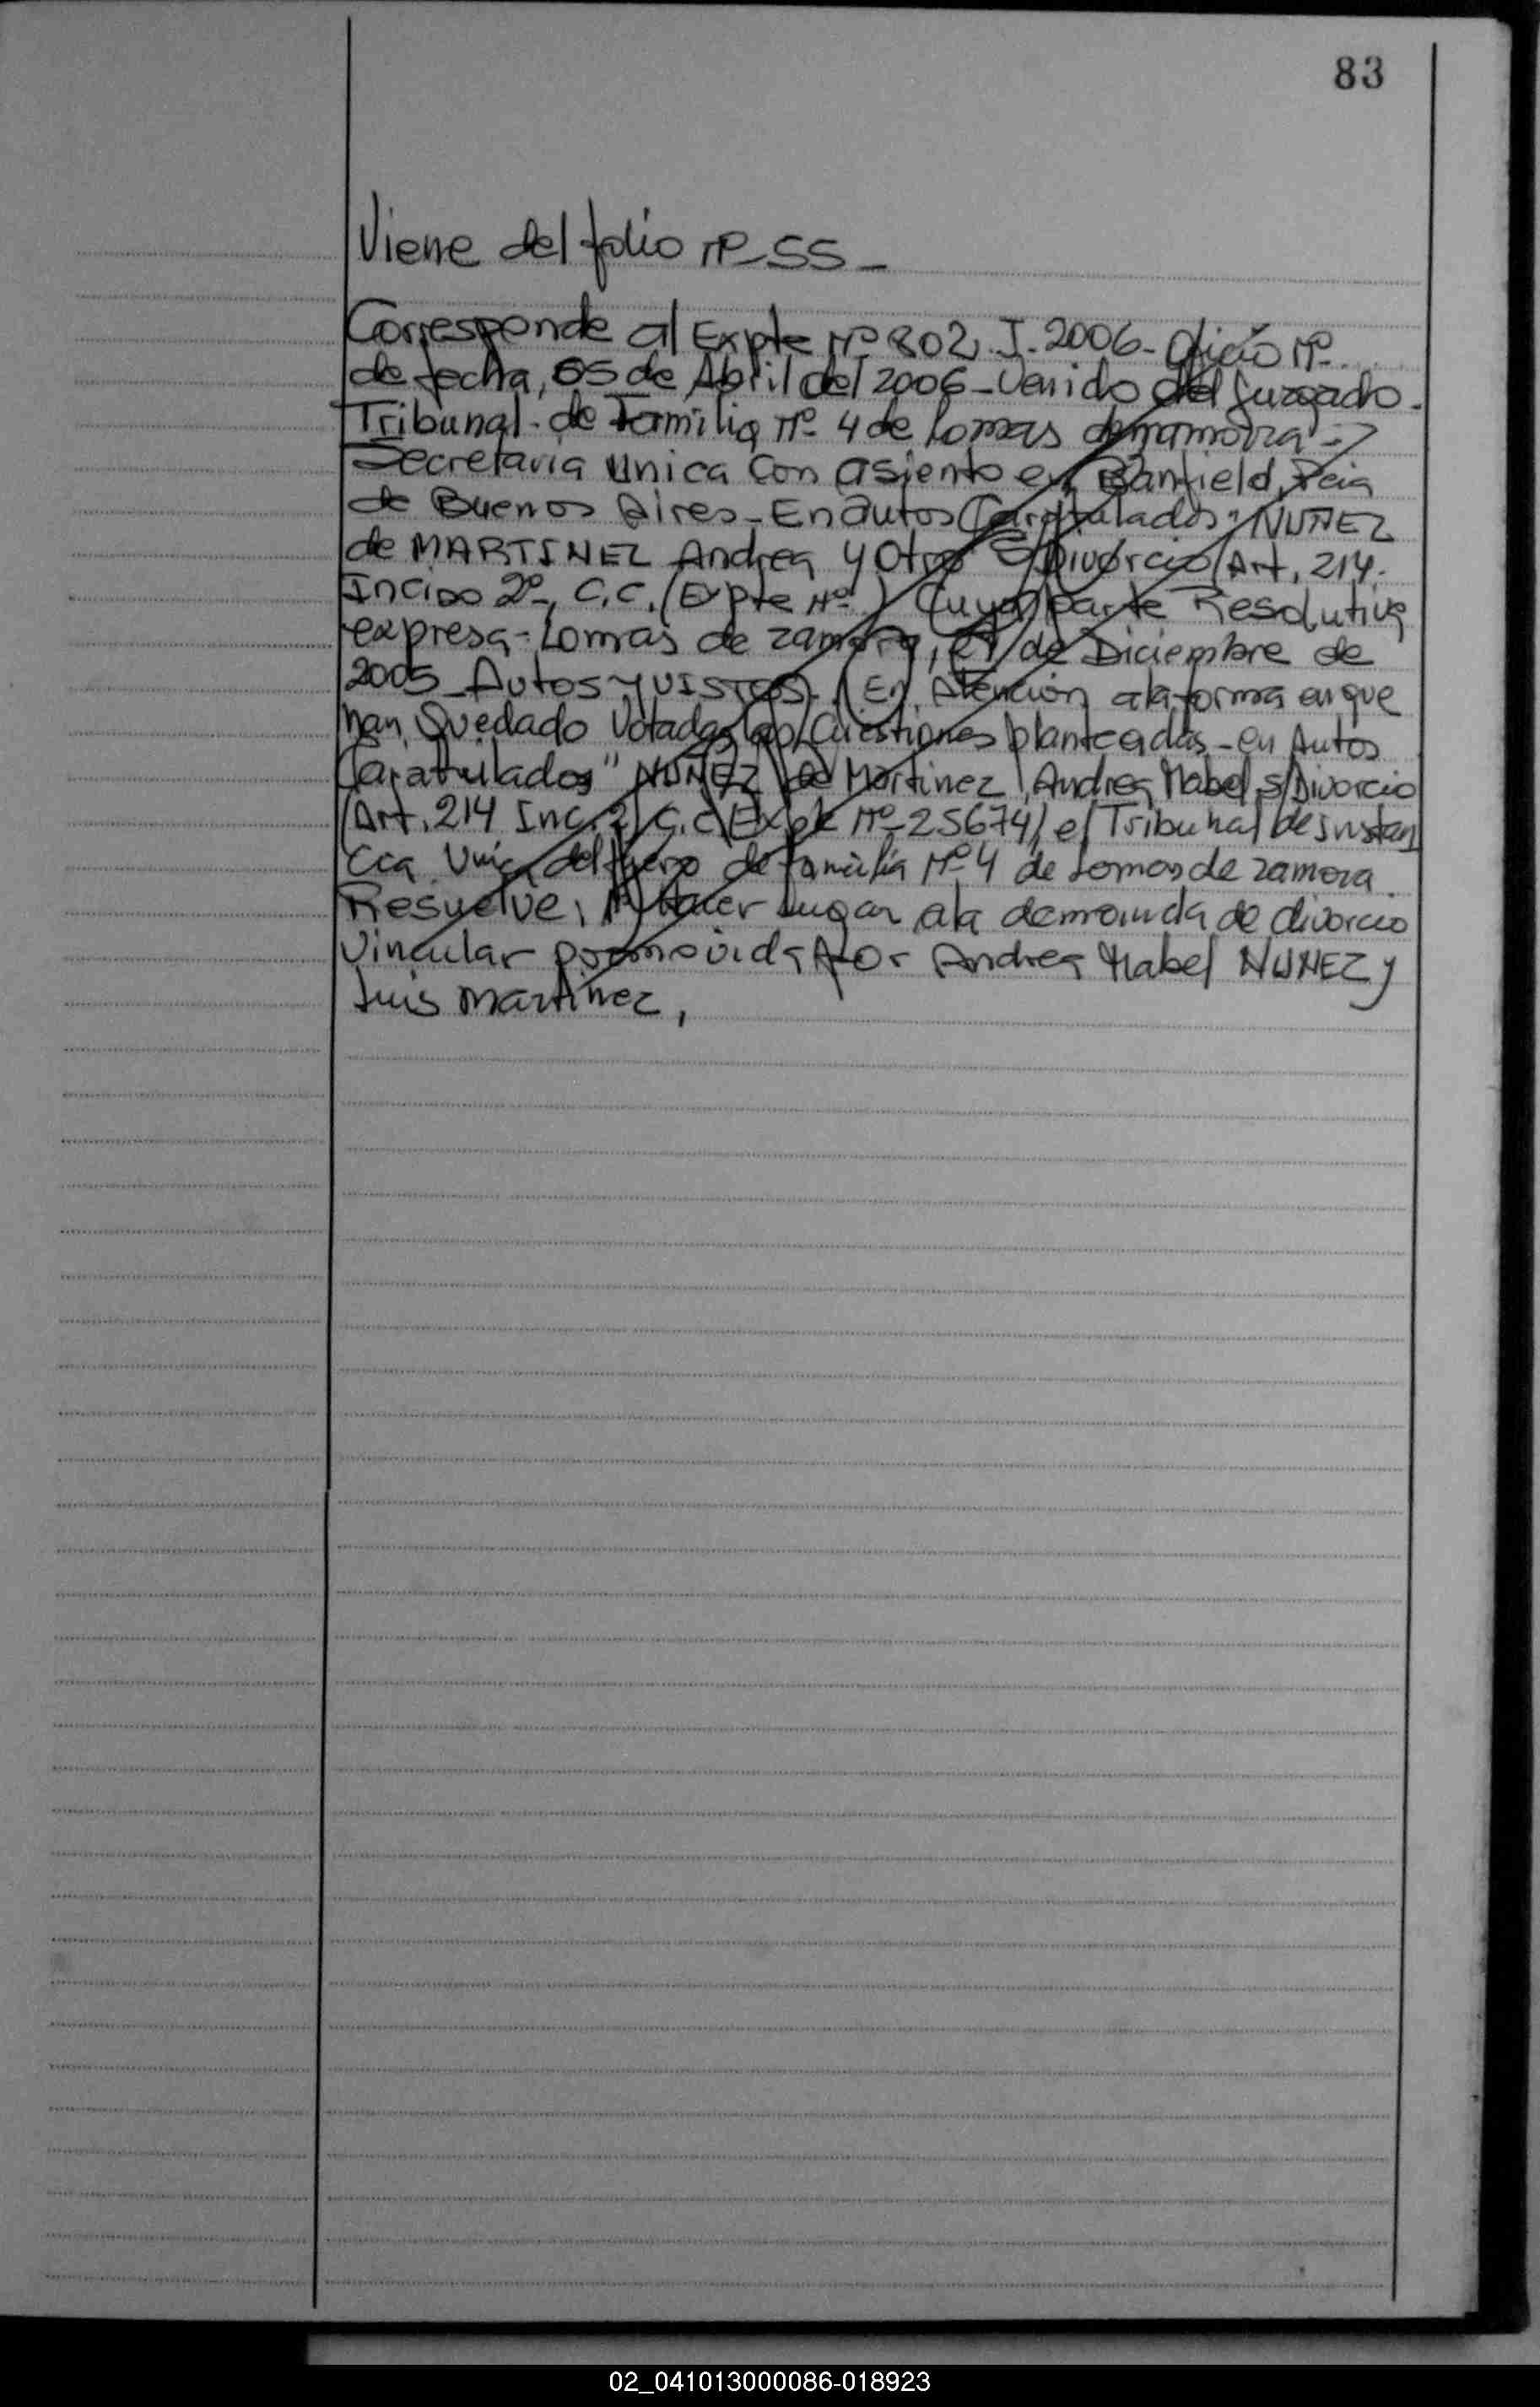 83
Viene del folio Nº 55_
Corresponde al Expte Nº 802. J. 2006- Oficio Nº....
de fecha, 05 de Abril del 2006 - Venido del Juzgado.
Tribunal. de Familia Nº 4 de Lomas de Zamora -
Secretaria Unica Con asiento en Banfield, Pcia
de Buenos Aires - En autos Caratulados "NUÑEZ
de MARTINEZ Andrea y Otro S/Divorcio (Art. 214.
Inciso 2º-, C.C. (Expte Nº ) Cuya parte Resolutiva
expresa - Lomas de Zamora, de Diciembre de
2005_ Autos y VISTOS. En Atención a la forma en que
han Quedado Votadas las Cuestiones planteadas - en Autos
Caratulados "NUÑEZ de Martinez, Andrea Mabel S/Divorcio
(Art. 214 Inc. 2) C.C (Expte Nº - 25674), el Tribunal de Instan
cia Unica del fuero de familia Nº 4 de Lomas de Zamora
Resuelve, Hacer Lugar a la demanda de divorcio
Vincular promovida por Andrea Mabel NUÑEZ y
Luis Martinez,
02_041013000086-018923